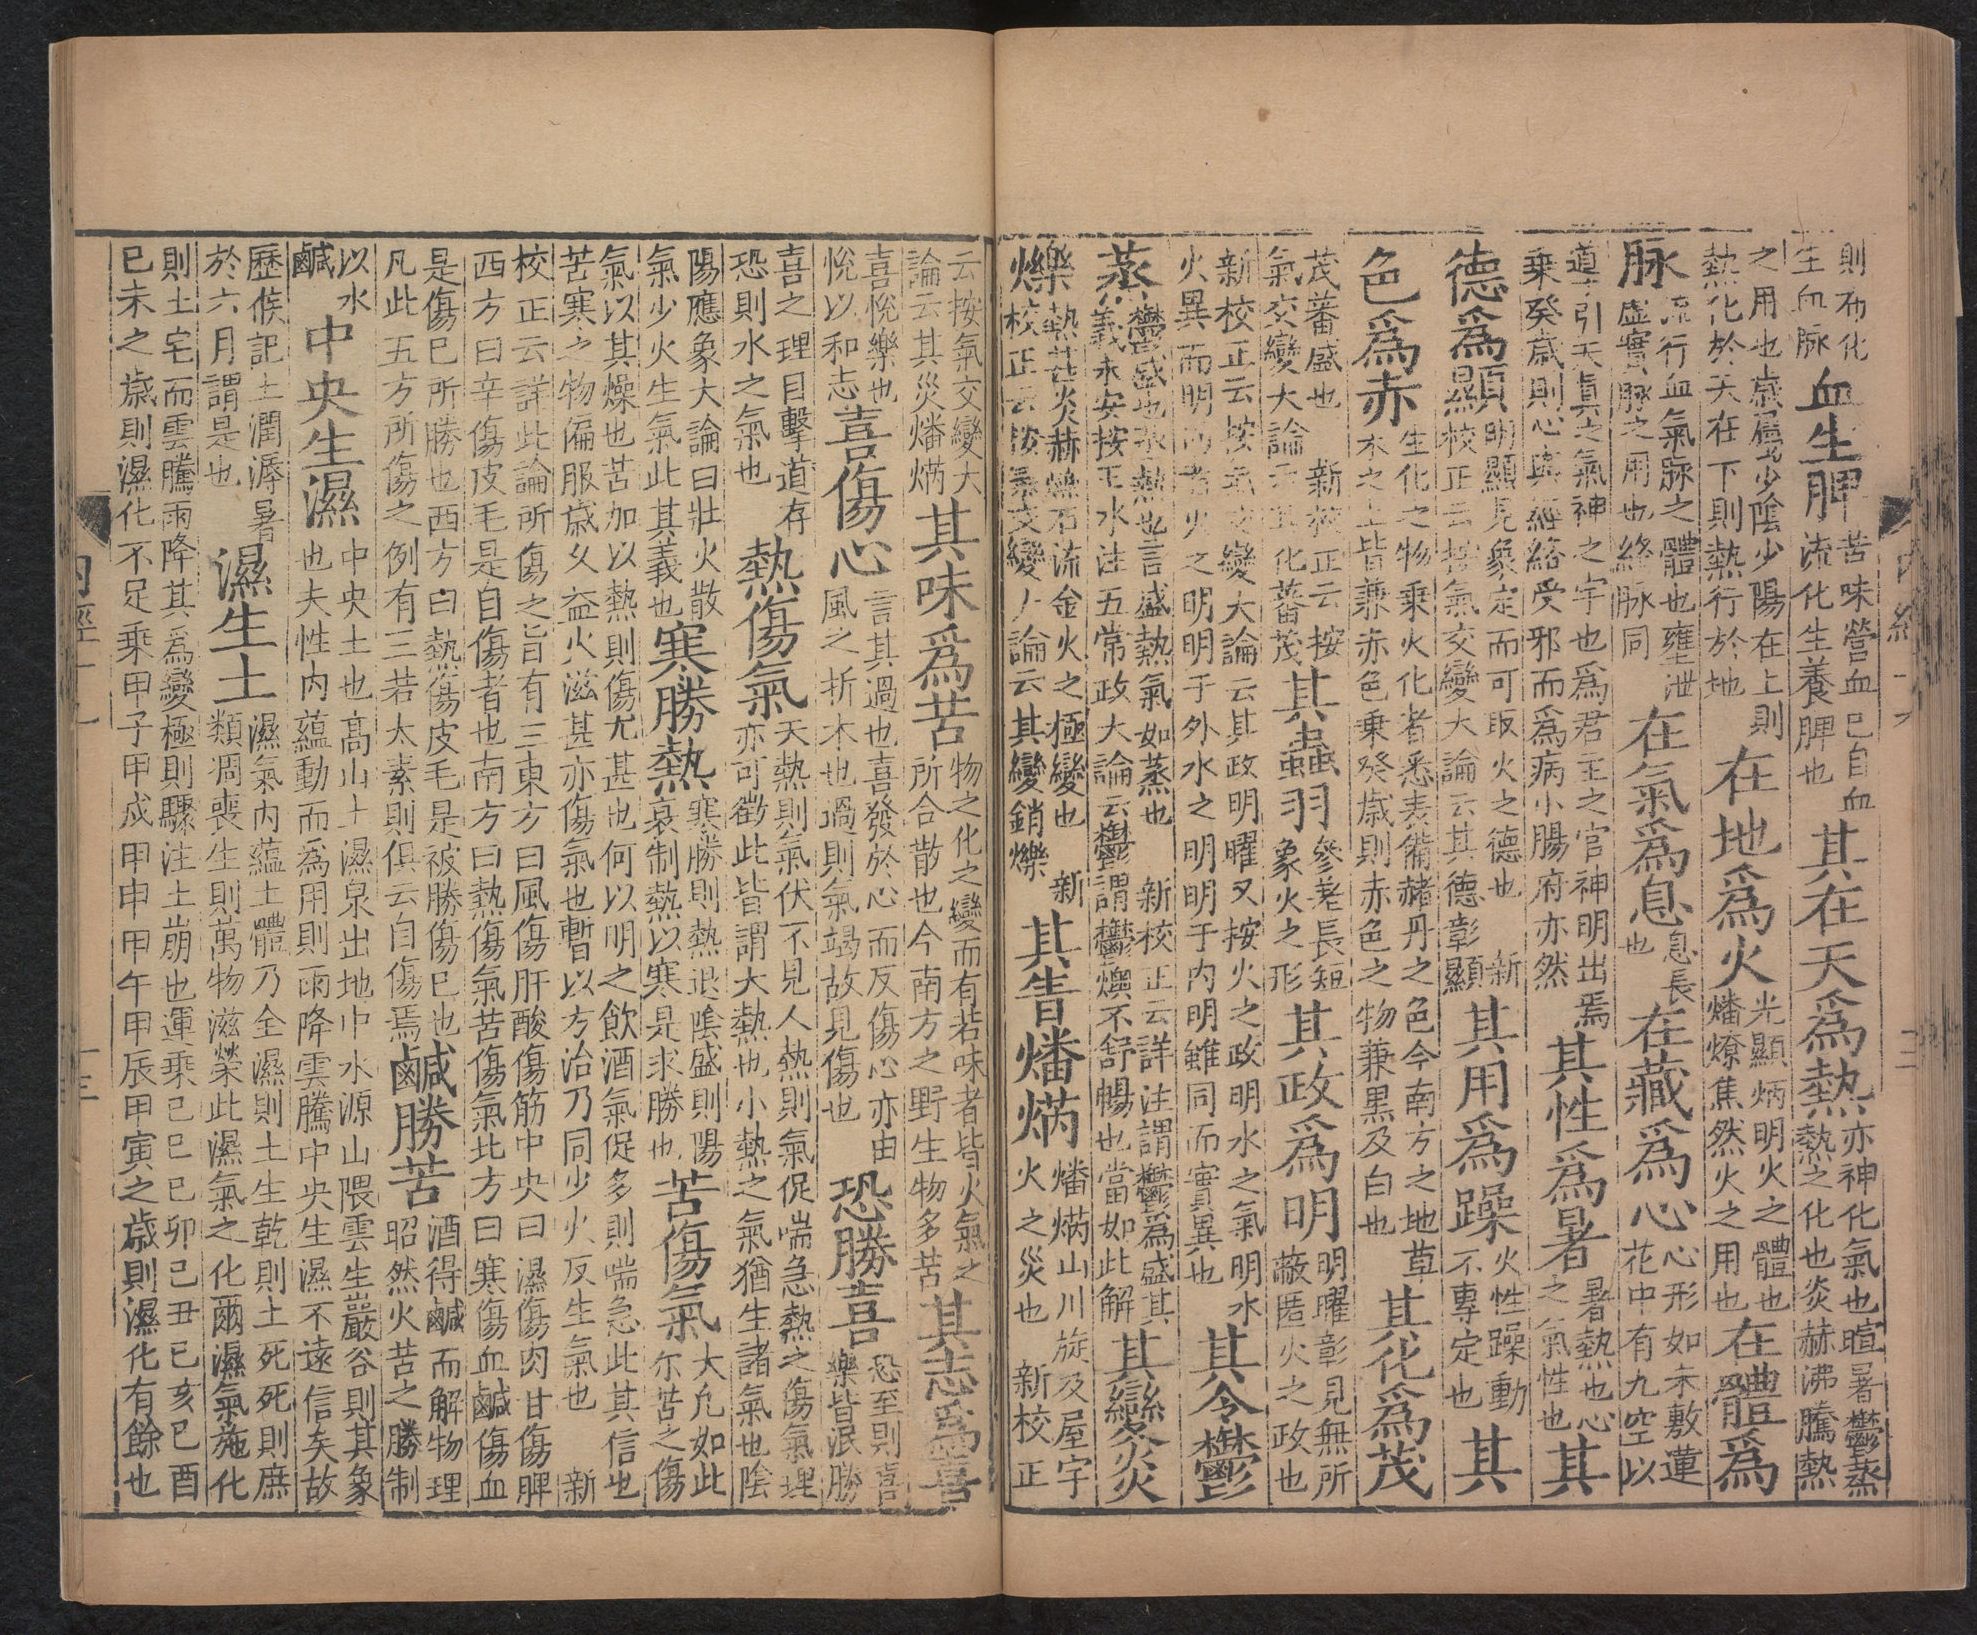 則布化生血脉血生脾苦味營血已自血流化生養脾也其在天爲熱亦神化氣也暄暑鬱蒸熱之化也炎赫沸騰熱
之用也歲屬少陰少陽在上則熱化於天在下則熱行於地在地爲火光顯炳明火之體也燔燎焦然火之用也在體爲
脉流行血氣脉之體也壅泄虛實脉之用也絡脉同在氣爲息息長也在藏爲心心形如未敷蓮花中有九空以
導引天真之氣神之宇也爲君主之官神明出焉乘癸歲則心與經絡受邪而爲病小腸府亦然其性爲暑暑熱也心之氣性也其
德爲顯明顯見象定而可取火之德也新校正云按氣交變大論云其德彰顯其用爲躁火性躁動不專定也其
色爲赤生化之物乘火化者悉表備赭丹之色今南方之地草木之上皆兼赤色乘癸歲則赤色之物兼黑及白也其化爲茂
茂蕃盛也新校正云按氣交變大論云其化蕃茂其蟲羽參差長短象火之形其政爲明明曜彰見無所蔽匿火之政也
新校正云按氣交變大論云其政明曜又按火之政明水之氣明水火異而明同者火之明明于外水之明明于内明雖同而實異也其令鬱
蒸鬱盛也蒸熱也言盛熱氣如蒸也新校正云詳注謂鬱爲盛其義未安按王水注五常政大論云鬱謂鬱燠不舒暢也當如此解其變炎
爍熱甚炎赫爍石流金火之極變也新校正云按氣交變大論云其變銷爍其眚燔焫燔焫山川旋及屋宇火之災也新校正
云按氣交變大論云其災燔焫其味爲苦物之化之變而有若味者皆火氣之所合散也今南方之野生物多苦其志爲喜
喜悅樂也悅以和志喜傷心言其過也喜發於心而反傷心亦由風之折木也過則氣竭故見傷也恐勝喜恐至則喜樂皆泯勝
喜之理目擊道存恐則水之氣也熱傷氣天熱則氣伏不見人熱則氣促喘急熱之傷氣理亦可徵此皆謂大熱也小熱之氣猶生諸氣也陰
陽應象大論曰壯火散氣少火生氣此其義也寒勝熱寒勝則熱退陰盛則陽衰制熱以寒是求勝也苦傷氣大凡如此尓苦之傷
氣以其燥也苦加以熱則傷尤甚也何以明之飲酒氣促多則喘急此其信也苦寒之物偏服歲久益火滋甚亦傷氣也暫以方治乃同少火反生氣也新
校正云詳此論所傷之旨有三東方曰風傷肝酸傷筋中央曰濕傷肉甘傷脾西方曰辛傷皮毛是自傷者也南方曰熱傷氣苦傷氣北方曰寒傷血鹹傷血
是傷已所勝也西方曰熱傷皮毛是被勝傷已也凡此五方所傷之例有三若太素則俱云自傷焉鹹勝苦酒得鹹而解物理昭然火苦之勝制
以水鹹中央生濕中央土也高山土濕泉出地中水源山隈雲生巖谷則其象也夫性内蘊動而爲用則雨降雲騰中央生濕不遠信矣故
歷候記土潤溽暑於六月謂是也濕生土濕氣内蘊土體乃全濕則土生乾則土死死則庶類凋喪生則萬物滋榮此濕氣之化爾濕氣施化
則土宅而雲騰雨降其爲變極則驟注土崩也運乘己巳己卯己丑己亥己酉己未之歲則濕化不足乘甲子甲戌甲申甲午甲辰甲寅之歲則濕化有餘也